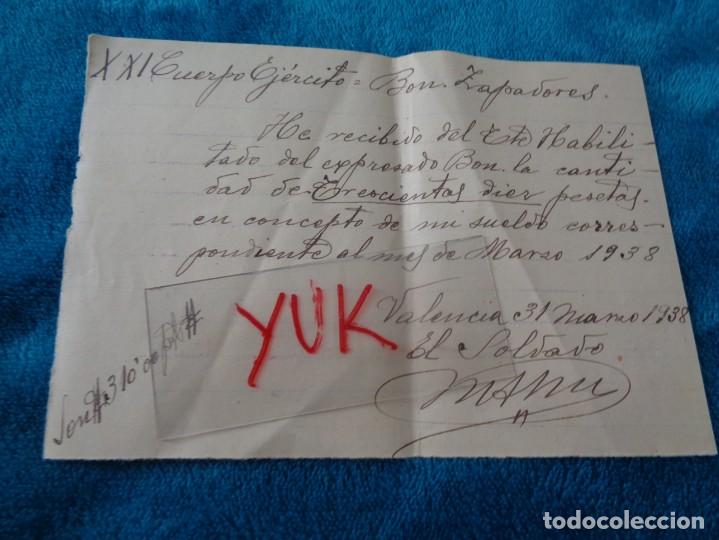 XXI Cuerpo Ejército = Bon. Zapadores.
He recibido del Ete Habili-
tado del expresado Bon. la canti-
dad de Trescientas diez pesetas.
en concepto de mi sueldo corres-
pondiente al mes de Marzo 1938
Valencia 31 Marzo 1938
El Soldado
Son # 310'00 ptas #
YUK
todocoleccion
todocoleccion.net